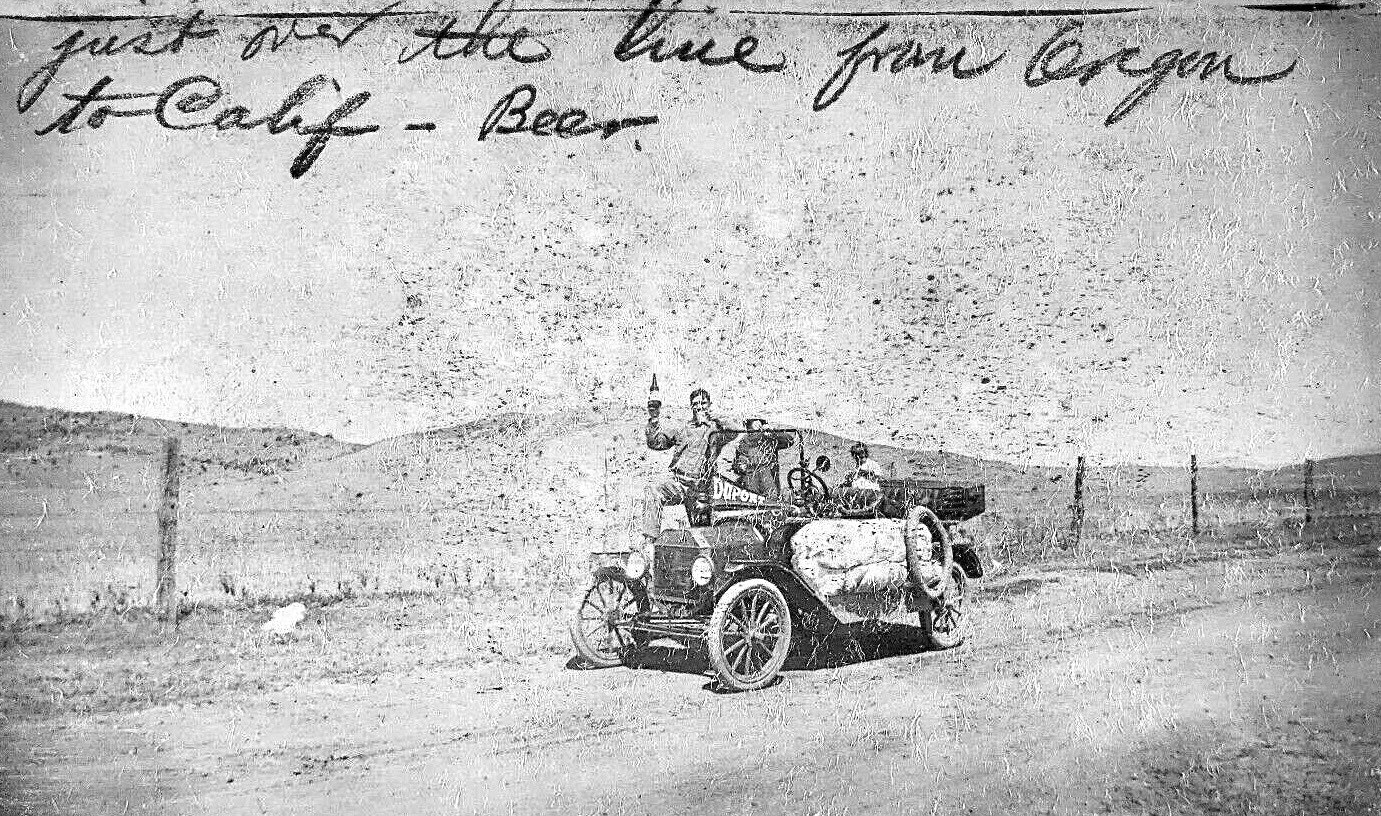 just over the line from Oregon
to Calif - Beer.
DUPONT